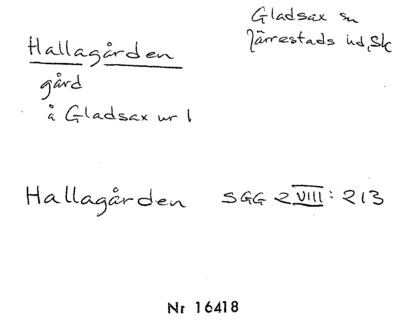 Gladsax sn
Järrestads hd, Sk
Hallagården
gård
å Gladsax nr 1
Hallagården SGG 2 VIII: 213
Nr 16418